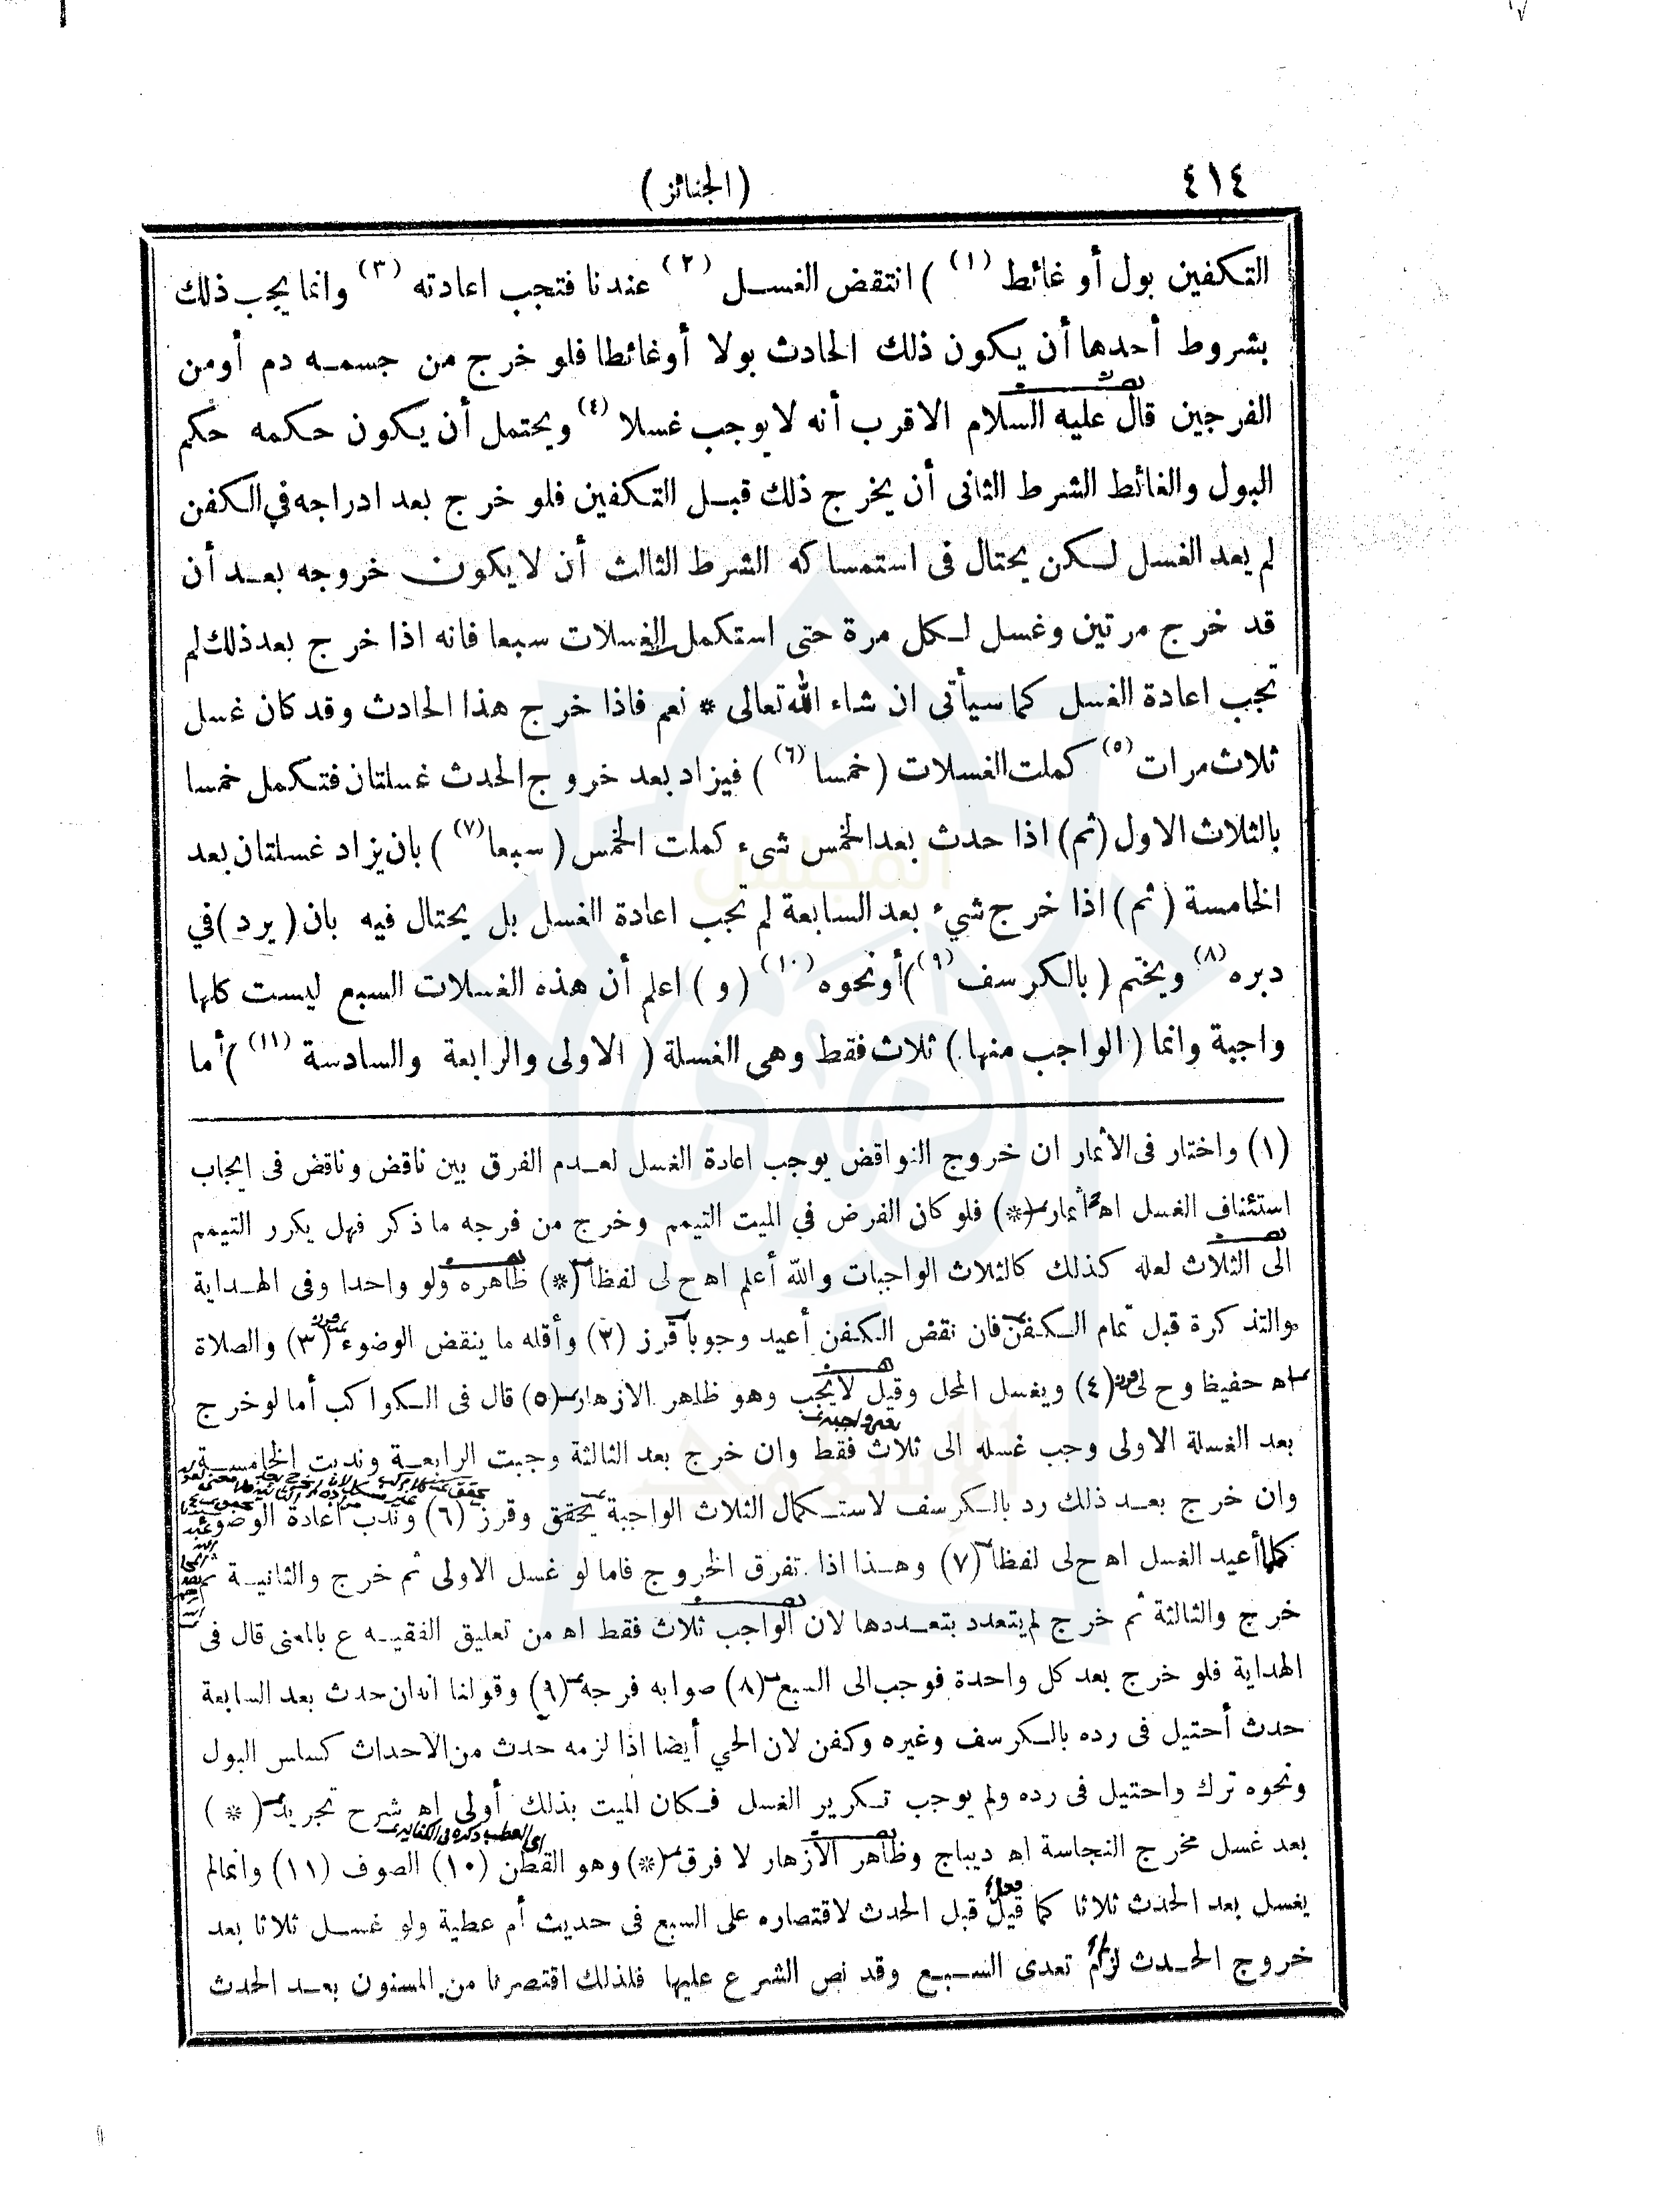 ٤١٤
(الجنائز)
التكفين بول أو غائط (١) ) انتقض الغسل (٢) عندنا فتجب اعادته (٣) وانما يجب ذلك
بشروط أحدها أن يكون ذلك الحادث بولا أوغائطا فلو خرج من جسمه دم أومن
الفرجين قال عليه السلام الاقرب أنه لا يوجب غسلا (٤) ويحتمل أن يكون حكمه حكم
البول والغائط الشرط الثانى أن يخرج ذلك قبل التكفين فلو خرج بعد ادراجه في الكفن
لم يعد الغسل لكن يحتال فى استمساكه الشرط الثالث أن لا يكون خروجه بعد أن
قد خرج مرتين وغسل لكل مرة حتى استكمل الغسلات سبعا فانه اذا خرج بعد ذلك لم
تجب اعادة الغسل كما سيأتى ان شاء الله تعالى * نعم فاذا خرج هذا الحادث وقد كان غسل
ثلاث مرات (٥) كملت الغسلات ( خمسا (٦) ) فيزاد بعد خروج الحدث غسلتان فتكمل خمسا
بالثلاث الاول (ثم) اذا حدث بعد الخمس شىء كملت الخمس ( سبعا (٧) ) بان يزاد غسلتان بعد
الخامسة ( ثم ) اذا خرج شيء بعد السابعة لم تجب اعادة الغسل بل يحتال فيه بان ( يرد ) في
دبره (٨) ويختم ( بالكرسف (٩) ) أونحوه (١٠) ( و ) اعلم أن هذه الغسلات السبع ليست كلها
واجبة وانما ( الواجب منها ) ثلاث فقط وهى الغسلة ( الاولى والرابعة والسادسة (١١) ) أما
(١) واختار فى الأثمار ان خروج النواقض يوجب اعادة الغسل لعدم الفرق بين ناقض وناقض فى ايجاب
استئناف الغسل اه اثمار (*) فلو كان الفرض في الميت التيمم وخرج من فرجه ما ذكر فهل يكرر التيمم
الى الثلاث لعله كذلك كالثلاث الواجبات والله أعلم اه ح لى لفظا (*) ظاهره ولو واحدا وفى الهداية
والتذكرة قبل تمام الكفن فان نقض الكفن أعيد وجوبا قرز (٢) وأقله ما ينقض الوضوء (٣) والصلاة
اه حفيظ وح لى (٤) ويغسل المحل وقيل لايجب وهو ظاهر الازهار (٥) قال فى الكواكب أما لو خرج
بعد الغسلة الاولى وجب غسله الى ثلاث فقط وان خرج بعد الثالثة وجبت الرابعة وندبت الخامسة
وان خرج بعد ذلك رد بالكرسف لاستكمال الثلاث الواجبة يحقق وقرز (٦) وندب اعادة الوضوء
كلما أعيد الغسل اه ح لى لفظا (٧) وهذا اذا تفرق الخروج فاما لو غسل الاولى ثم خرج والثانية ثم
خرج والثالثة ثم خرج لم يتعدد بتعددها لان الواجب ثلاث فقط اه من تعليق الفقيه ع بالمعنى قال فى
الهداية فلو خرج بعد كل واحدة فوجب الى السبع (٨) صوابه فرجه (٩) وقولنا انه ان حدث بعد السابعة
حدث أحتيل فى رده بالكرسف وغيره وكفن لان الحي أيضا اذا لزمه حدث من الاحداث كساس البول
ونحوه ترك واحتيل فى رده ولم يوجب تكرير الغسل فكان الميت بذلك أولى اه شرح تجريد (*)
بعد غسل مخرج النجاسة اه ديباج وظاهر الأزهار لا فرق (*) وهو القطن (١٠) الصوف (١١) وانمالم
يغسل بعد الحدث ثلاثا كما قيل قبل الحدث لاقتصاره على السبع فى حديث أم عطية ولو غسل ثلاثا بعد
خروج الحدث لزم تعدى السبع وقد نص الشرع عليها فلذلك اقتصرنا من المسنون بعد الحدث